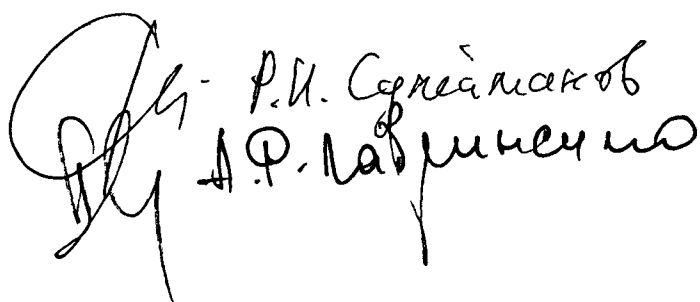 Р.И. Сулейманов
А.Ф. Лавриненко